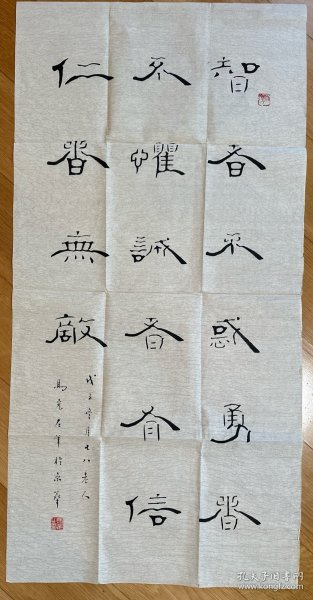 智者不惑勇者
不懼誠者有信
仁者無敵
戊子雪月七八老人
馬
孔夫子旧书网
www.kongfz.com